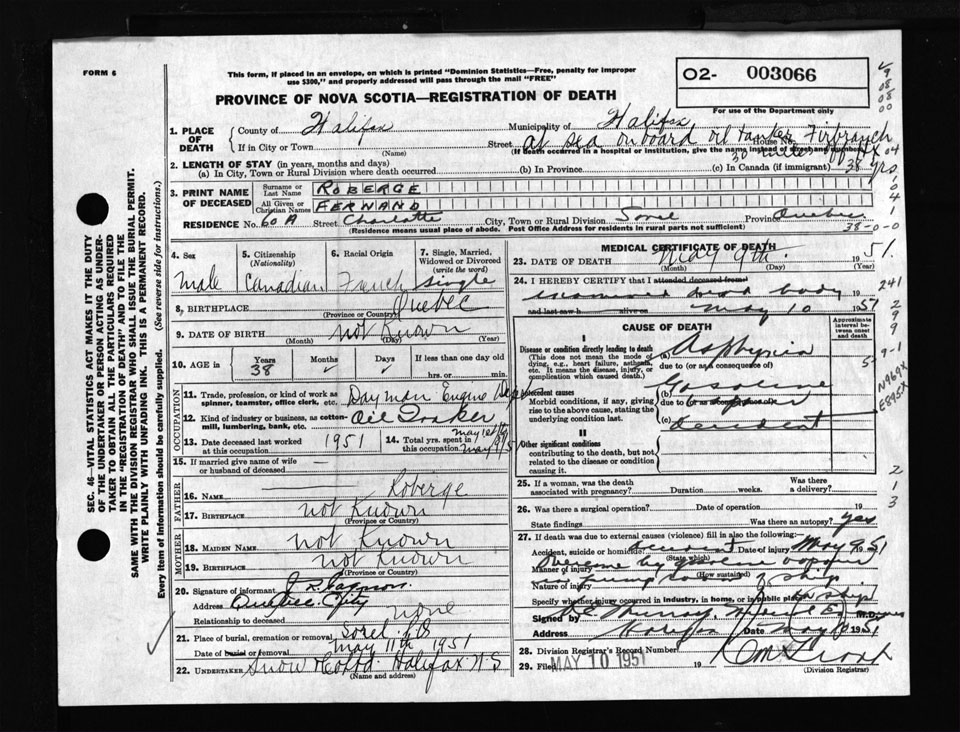 FORM 6
This form, if placed in an envelope, on which is printed "Dominion Statistics—Free, penalty for improper
use $300," and properly addressed will pass through the mail "FREE"
O2- 003066
PROVINCE OF NOVA SCOTIA—REGISTRATION OF DEATH
For use of the Department only
1. PLACE OF DEATH
County of Halifax Municipality of Halifax
If in City or Town (Name) Street at sea on board oil tanker Firbranch House No.
(If death occurred in a hospital or institution, give the name instead of street and number)
30 miles off
2. LENGTH OF STAY (in years, months and days)
(a) In City, Town or Rural Division where death occurred (b) In Province (c) In Canada (if immigrant) 38 yrs
3. PRINT NAME OF DECEASED
Surname or Last Name ROBERGE
All Given or Christian Names FERNAND
RESIDENCE No. 60 A Street Charlotte City, Town or Rural Division Sorel Province Quebec
(Residence means usual place of abode. Post Office Address for residents in rural parts not sufficient)
38-0-0
4. Sex
male
5. Citizenship (Nationality)
Canadian
6. Racial Origin
French
7. Single, Married, Widowed or Divorced (write the word)
single
8. BIRTHPLACE Quebec
(Province or Country)
9. DATE OF BIRTH not Known
(Month) (Day) (Year)
10. AGE in Years 38 Months ✓ Days ✓ If less than one day old
hrs. or min.
OCCUPATION
11. Trade, profession, or kind of work as spinner, teamster, office clerk, etc. Dayman Engine Dept
12. Kind of industry or business, as cotton-mill, lumbering, bank, etc. Oil Tanker
13. Date deceased last worked at this occupation 1951
14. Total yrs. spent in this occupation
15. If married give name of wife or husband of deceased —
FATHER
16. NAME Roberge
17. BIRTHPLACE not Known
(Province or Country)
MOTHER
18. MAIDEN NAME not Known
19. BIRTHPLACE not Known
(Province or Country)
20. Signature of informant
Address Quebec City
Relationship to deceased none
21. Place of burial, cremation or removal Sorel
22. Date of burial or removal May 11th 1951
22. UNDERTAKER Snow & Co Ltd. Halifax N.S.
(Name and address)
MEDICAL CERTIFICATE OF DEATH
23. DATE OF DEATH May 9th. 1951.
(Month) (Day) (Year)
24. I HEREBY CERTIFY that I attended deceased from
examined dead body 19
and last saw h alive on May 10 1951
CAUSE OF DEATH
Approximate interval between onset and death
I
Disease or condition directly leading to death
(This does not mean the mode of dying, e.g., heart failure, asthenia, etc. It means the disease, injury, or complication which caused death.)
(a) Asphyxia
due to (or as a consequence of)
Antecedent causes
Morbid conditions, if any, giving rise to the above cause, stating the underlying condition last.
(b) Gasoline
due to (or as a consequence of)
vapor
(c) accident
II
Other significant conditions
contributing to the death, but not related to the disease or condition causing it.
25. If a woman, was the death associated with pregnancy? Duration weeks. Was there a delivery?
26. Was there a surgical operation? Date of operation 19
State findings Was there an autopsy? yes
27. If death was due to external causes (violence) fill in also the following:
Accident, suicide or homicide? accident Date of injury May 9 1951
(State which)
Manner of injury Overcome by gasolene vapor
(How sustained)
Nature of injury in pump room of ship
Specify whether injury occurred in industry, in home, or in public place on ship
Signed by M.D.
Address Halifax Date May 10 1951
28. Division Registrar's Record Number
29. Filed MAY 10 1951 19
(Division Registrar)
SEC. 46—VITAL STATISTICS ACT MAKES IT THE DUTY
OF THE UNDERTAKER OR PERSON ACTING AS UNDER-
TAKER TO OBTAIN ALL THE PARTICULARS REQUIRED
IN THE "REGISTRATION OF DEATH" AND TO FILE THE
SAME WITH THE DIVISION REGISTRAR WHO SHALL ISSUE THE BURIAL PERMIT.
WRITE PLAINLY WITH UNFADING INK. THIS IS A PERMANENT RECORD.
Every item of information should be carefully supplied. (See reverse side for instructions.)
241
N969X
E895X